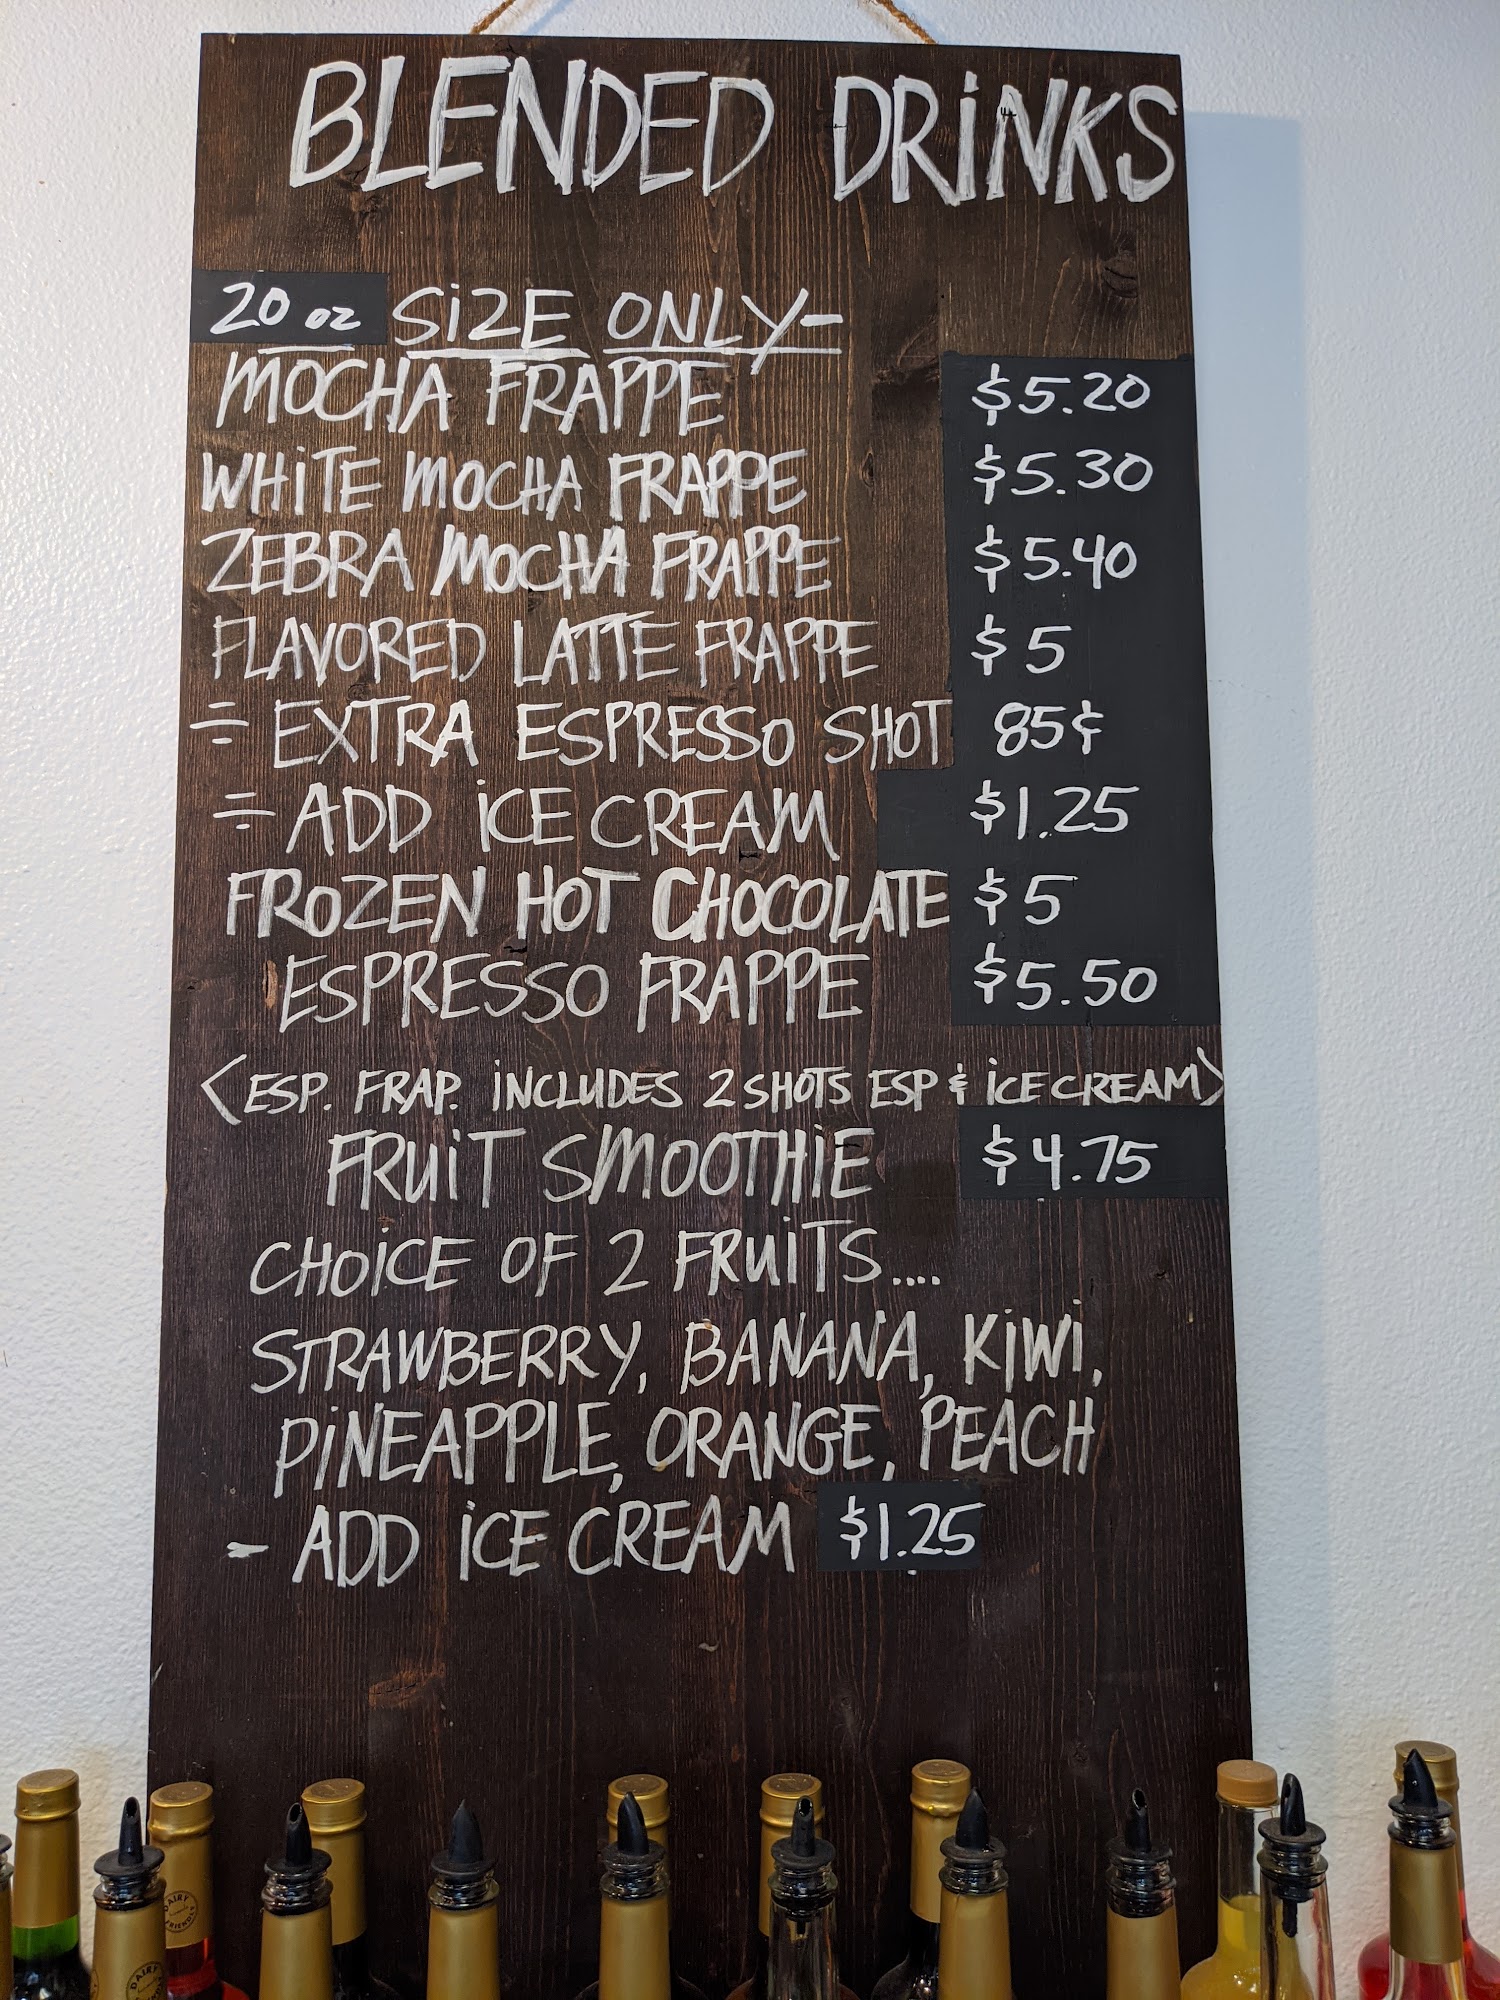 BLENDED DRiNKS
20 oz SiZE ONLY-
MOCHA FRAPPE $5.20
WHiTE MOCHA FRAPPE $5.30
ZEBRA MOCHA FRAPPE $5.40
FLAVORED LATTE FRAPPE $5
÷ EXTRA ESPRESSO SHOT 85¢
÷ ADD iCE CREAM $1.25
FROZEN HOT CHOCOLATE $5
ESPRESSO FRAPPE $5.50
<ESP. FRAP. iNCLUDES 2 SHOTS ESP & iCE CREAM>
FRUiT SMOOTHiE $4.75
CHOiCE OF 2 FRUiTS....
STRAWBERRY, BANANA, KiWi,
PiNEAPPLE, ORANGE, PEACH
- ADD iCE CREAM $1.25
DAIRY
FRIENDLY
DAIRY